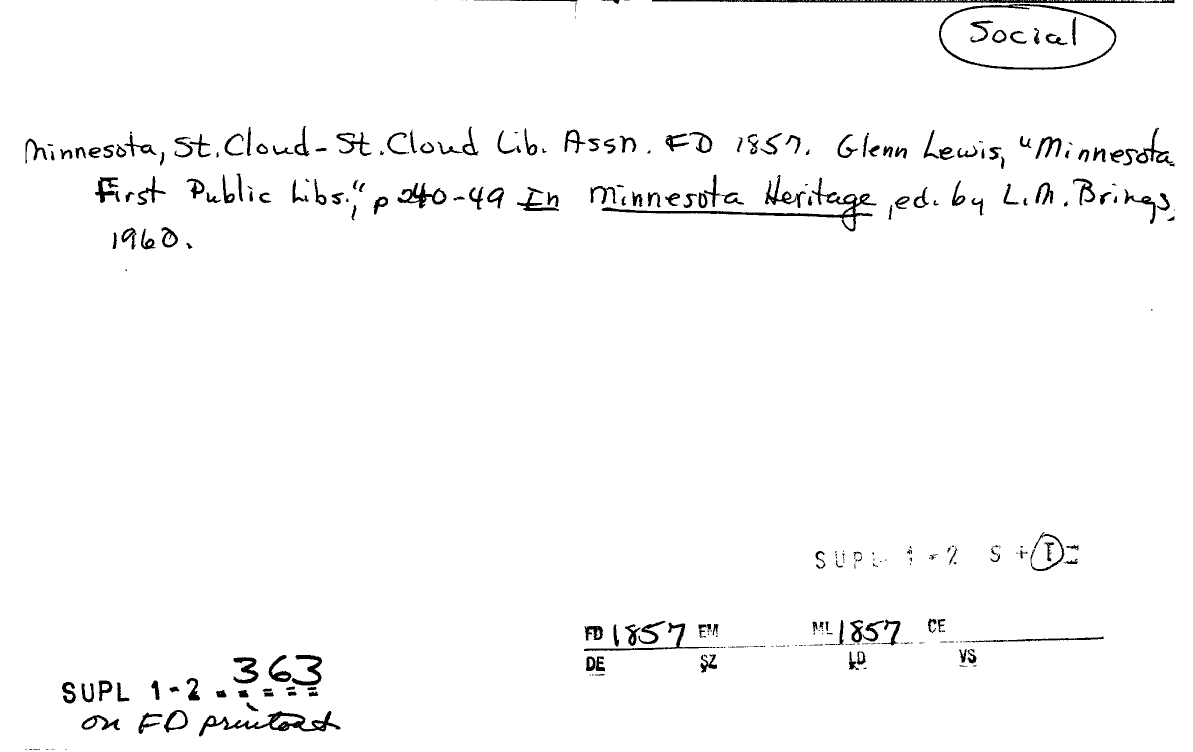 Social
Minnesota, St. Cloud - St. Cloud Lib. Assn. FD 1857. Glenn Lewis, "Minnesota
First Public Libs.," p 240-49 In Minnesota Heritage, ed. by L.M. Brings,
1960.
SUPL 1-2 S + I
FD 1857 EM ML 1857 CE
DE SZ LD VS
SUPL 1-2 363
on FD printout